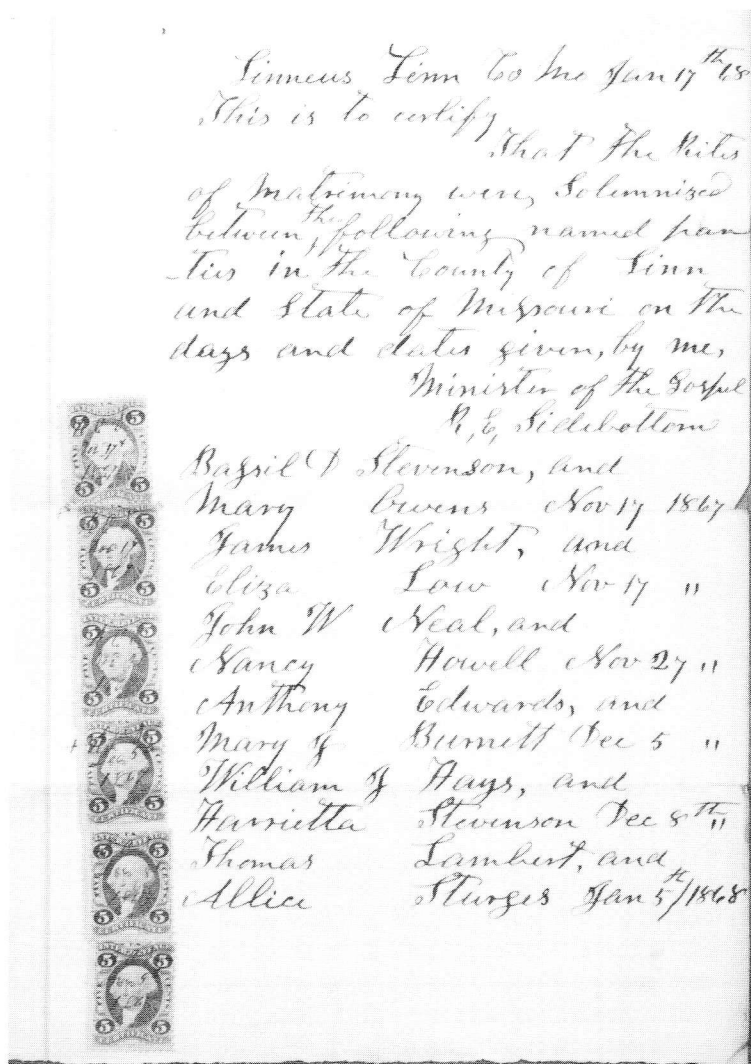 Linneus Linn Co Mo Jan 17th 68
This is to certify
That The Rites
of Matrimony were, Solemnized
between, the following named par
-ties in The County of Linn
and State of Missouri on the
days and dates given, by me,
Minister of The Gospel
R, E, Sidebottom
Bazsil D Stevenson, and
Mary Owens Nov 17 1867
James Wright, and
Eliza Low Nov 17 "
John W Neal, and
Nancy Howell Nov 27 "
Anthony Edwards, and
Mary J Burnett Dec 5 "
William J Hays, and
Harrietta Stevenson Dec 8th "
Thomas Lambert, and
Allice Sturges Jan 5th/1868
5 5
FIVE CENTS
5 5
5 5
5 5
5 5
5 5
5 5
5 5
5 5
5 5
5 5
5 5